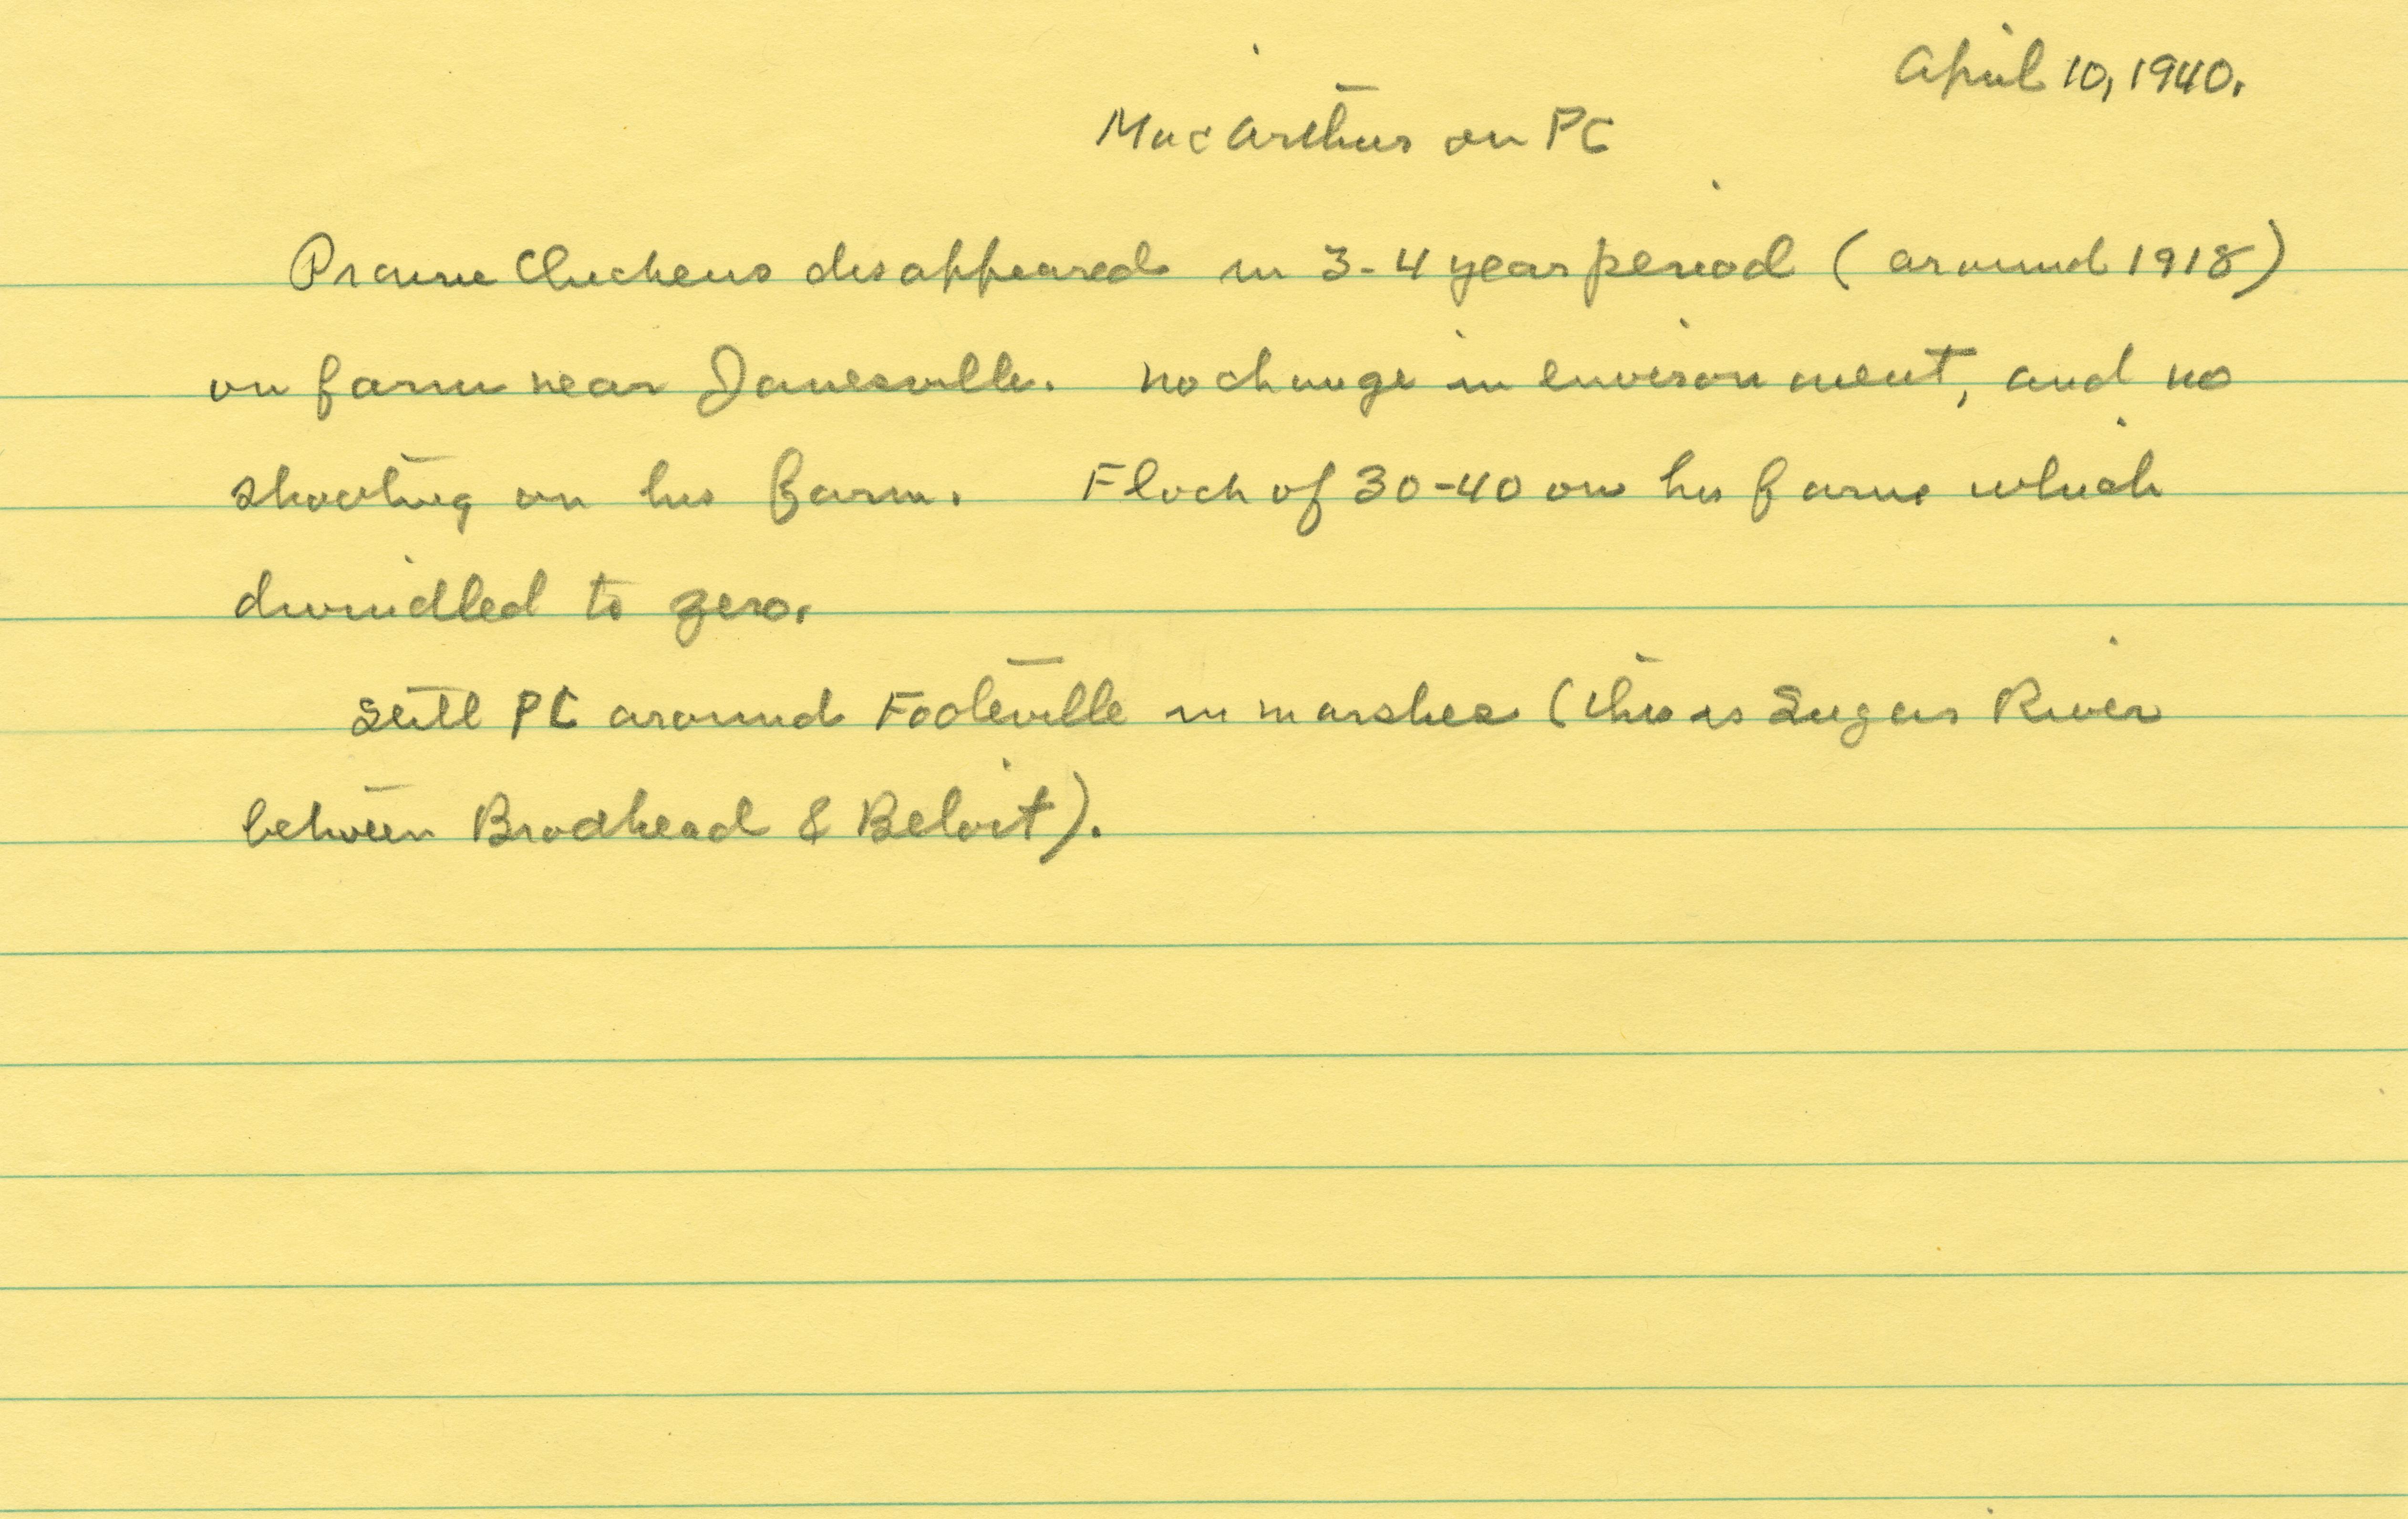 April 10, 1940.
MacArthur on PC
Prairie Chickens disappeared in 3-4 year period (around 1918)
on farm near Janesville. No change in environment, and no
shooting on his farm. Flock of 30-40 on his farm which
dwindled to zero.
Still PC around Footeville in marshes (this is Sugar River
between Brodhead & Beloit).